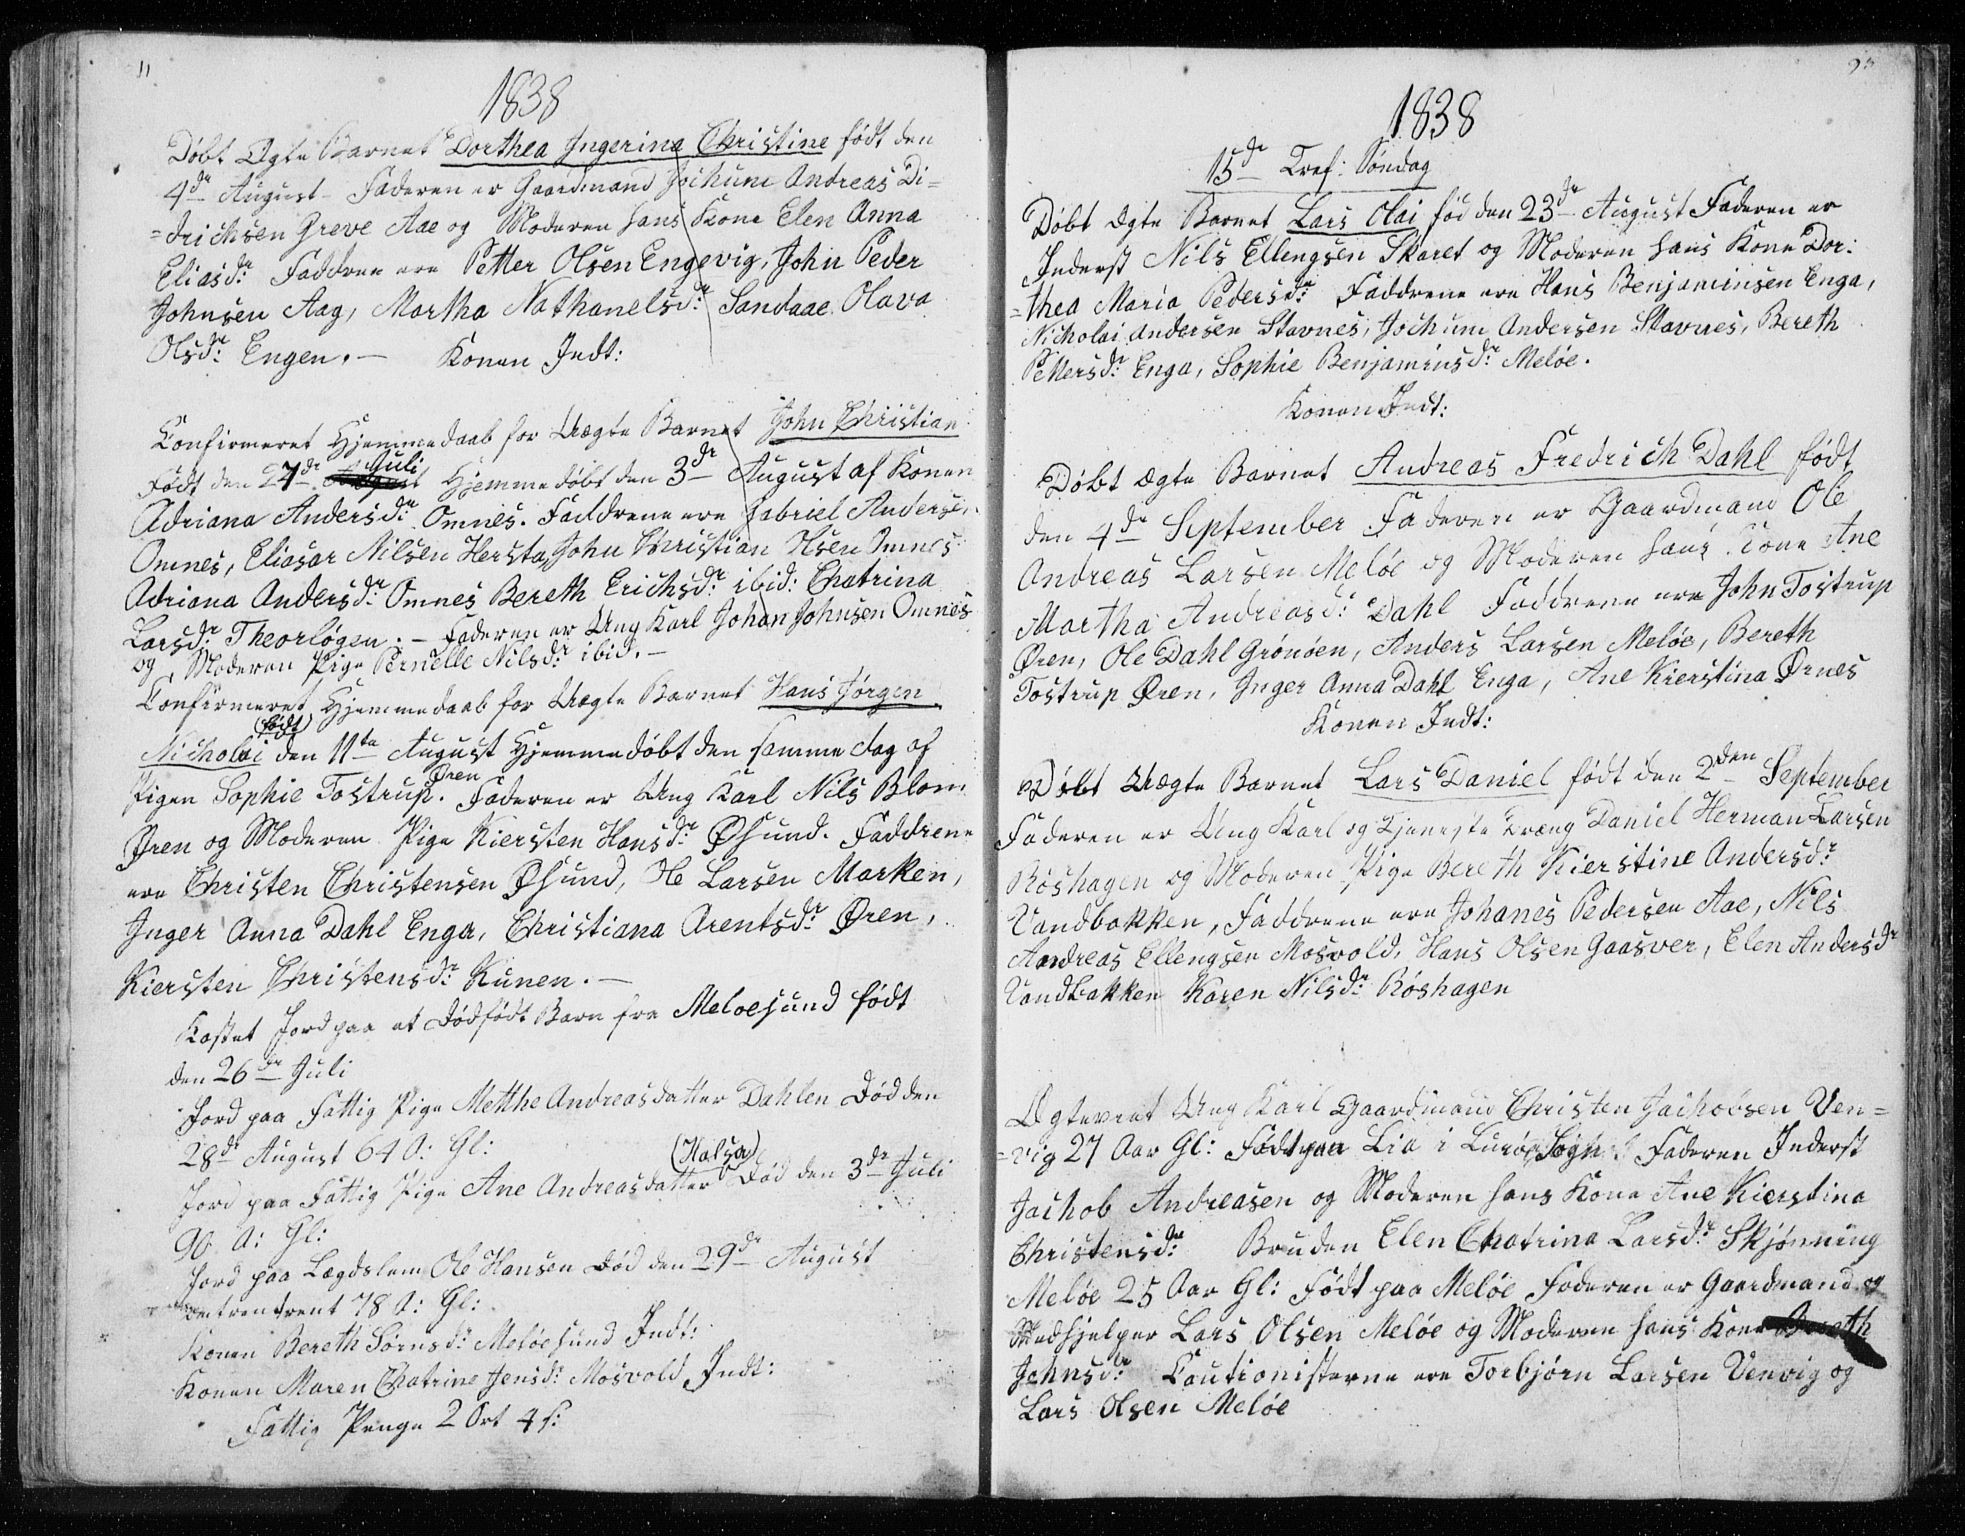 11
1838
Døbt Ægte Barnet Dorthea Ingerina Christine født den
4de August - Faderen er Gaardmand Jochum Andreas Di=
=drichsen Greve Aae og Moderen hans Kone Elen Anna
Eliasdr: Faddrene ere Petter Olsen Engevig, John Peder
Johnsen Aag, Martha Nathanelsdr: Sandaae Olava
Olsdr: Engen. — Konen Indt:
Confirmeret Hjemmedaab for Uægte Barnet John Christian
Født den 27de Juli Hjemmedøbt den 3de August af Konen
Adriana Andersdr: Omnes. Faddrene ere Gabriel Andersen
Omnes, Eliasar Nilsen Hersta, John Christian Olsen Omnes
Adriana Andersdr: Omnes Bereth Erichsdr: ibid: Chatrina
Larsdr: Theorløgen. — Faderen er Ung Karl Johan Johnsen Omnes
og Moderen Pige Pernelle Nilsdr: ibid. —
Confirmeret Hjemmedaab for Uægte Barnet Hans Jørgen
Nicholai (født) den 11te August Hjemmedøbt den samme dag af
Pigen Sophie Tostrup Øren. Faderen er Ung Karl Nils Blom
Øren og Moderen Pige Kiersten Hansdr: Øsund. Faddrene
ere Christen Christensen Øsund, Ole Larsen Marken,
Inger Anna Dahl Enga, Christiana Arentsdr: Øren,
Kiersten Christensdr: Kunen. —
Kastet Jord paa et Dødfødt Barn fra Meloesund født
den 26de Juli
Jord paa Fattig Pige Metthe Andreasdatter Dahlen Død den
28de August 64 A: Gl:
Jord paa Fattig Pige Ane Andreasdatter (Halsa) Død den 3de Juli
90 A: Gl:
Jord paa Lægdslem Ole Hansen Død den 29de August
78 A: Gl:
Konen Bereth Sørnsdr: Meløesund Indt:
Konen Maren Chatrine Jensdr: Mosvold Indt:
Fattig Penge 2 Ort 4 s:
1838
15de Tref: Søndag
Døbt Ægte Barnet Lars Olai fød den 23de August Faderen er
Inderst Nils Ellengsen Skaret og Moderen hans Kone Dor:
=thea Maria Pedersdr: Faddrene ere Hans Benjaminsen Enga,
Nicholai Andersen Stavnes, Jochum Andersen Stavnes, Bereth
Pettersdr: Enga, Sophie Benjaminsdr: Meløe.
Konen Indt:
Døbt Ægte Barnet Andreas Fredrich Dahl født
den 4de September Faderen er Gaardmand Ole
Andreas Larsen Meløe og Moderen hans Kone Ane
Martha Andreasd: Dahl Faddrene ere John Tostrup
Øren, Ole Dahl Grønøen, Anders Larsen Meløe, Bereth
Tostrup Øren, Inger Anna Dahl Enga, Ane Kierstina Ørnes
Konen Indt:
Døbt Uægte Barnet Lars Daniel født den 2den September
Faderen er Ung Karl og Tjeneste Dræng Daniel Herman Larsen
Røshagen og Moderen Pige Bereth Kierstine Andersdr:
Vandbakken, Faddrene ere Johanes Pedersen Aae, Nils
Andreas Ellengsen Mosvold, Hans Olsen Gaasver, Elen Andersdr
Vandbakken Karen Nilsdr: Røshagen
Ægteviet Ung Karl Gaardmand Christen Jachobsen Ven=
=vig 27 Aar Gl: Født paa Lia i Lurøe Sogn: Faderen Inderst
Jachob Andreasen og Moderen hans Kone Ane Kierstina
Christensdr: Bruden Elen Chatrina Larsdr: Skjønning
Meløe 25 Aar Gl: Født paa Meløe Faderen er Gaardmand og
Medhjelper Lars Olsen Meløe og Moderen hans Kone Bereth
Johnsdr: Cautionisterne ere Torbjørn Larsen Venvig og
Lars Olsen Meløe